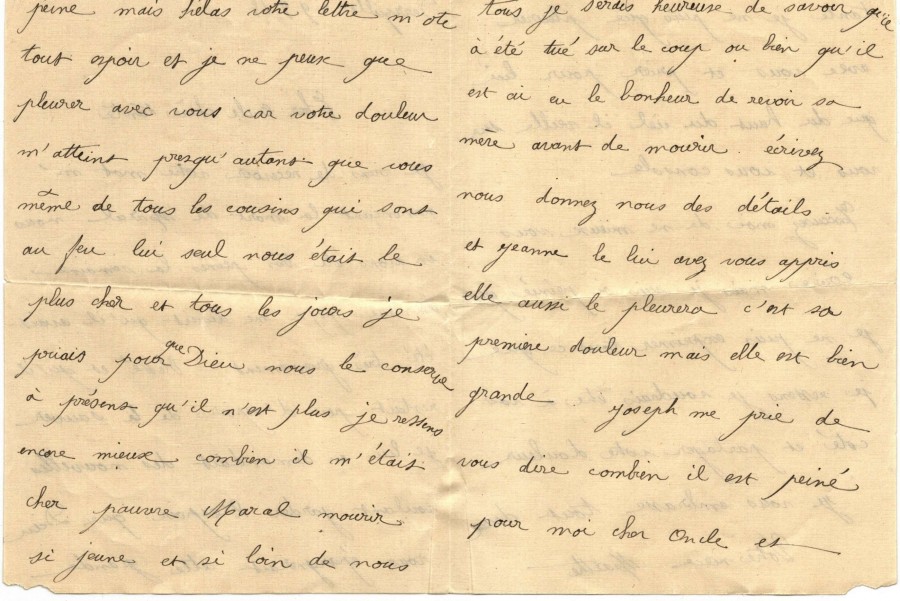 peine mais hélas votre lettre m'ote
tout espoir et je ne peux que
pleurer avec vous car votre douleur
m'atteint presqu'autant que vous
même de tous les cousins qui sont
au feu lui seul nous était le
plus cher et tous les jours je
priais pour que Dieu nous le conserve
à présent qu'il n'est plus je ressens
encore mieux combien il m'était
cher pauvre Maral mourir
si jeune et si loin de nous
tous je serais heureuse de savoir qu'il
à été tué sur le coup ou bien qu'il
est ai eu le bonheur de revoir sa
mère avant de mourir. écrivez
nous donnez nous des détails
et Jeanne le lui avez vous appris
elle aussi le pleurera c'est sa
première douleur mais elle est bien
grande Joseph me prie de
vous dire combien il est peiné
pour moi cher Oncle et